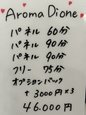 Aroma Dione
パネル 60分
パネル 90分
パネル 90分
フリー 75分
オプションパック
+ 3000円×3
46.000円